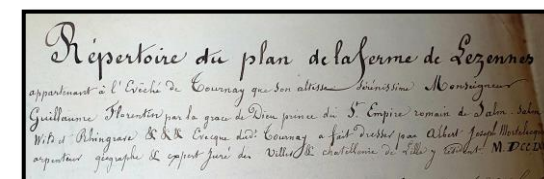 Répertoire du plan de la ferme de Lezennes
appartenant à l'Evêché de Tournay que son altisse sérénissime Monseigneur
Guillaume Florentin par la grace de Dieu prince du St. Empire romain de Salm Salm
Wild et Rhingrave &&& Evêque dudt Tournay a fait dresser par Albert Joseph
arpenteur géographe & expert Juré des Villes & chatellenie de Lille y résident